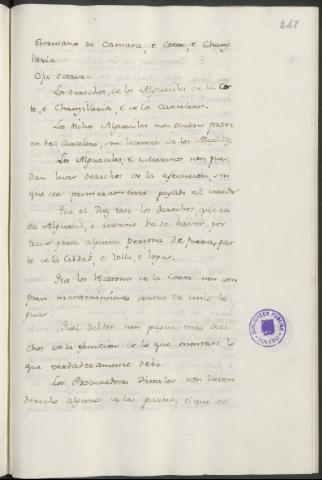 247
Escrivano de Camara, é Corte, é Chanzi
lleria
Oja octava
Los derechos, de los Alguaciles de la Cor
te, é Chanzilleria, é de los Carceleros.
Los dichos Alguaciles non puedan poner
en de Carcelero, sin licencia de los Alcaldes
Los Alguaciles, é Merinos non pue
dan levar derechos de la egecucion, sin
que sea primeramente pagado el
Que el Juez tase los derechos que ca
da Alguacil, o Merino ha de haver, por
traer presa alguna persona de fuera, par
te de la Cibdad, é Villa, é logar.
Que los de la Corte non com
pren mantenimientos dentro de cinco le
guas.
Quel debdor non pague mas dere
chos de la egecucion de lo que montare lo
que verdaderamente debe
Los Procuradores Fiscales non lieven
derecho alguno de las partes, é que
BIBLIOTECA PUBLICA
TOLEDO